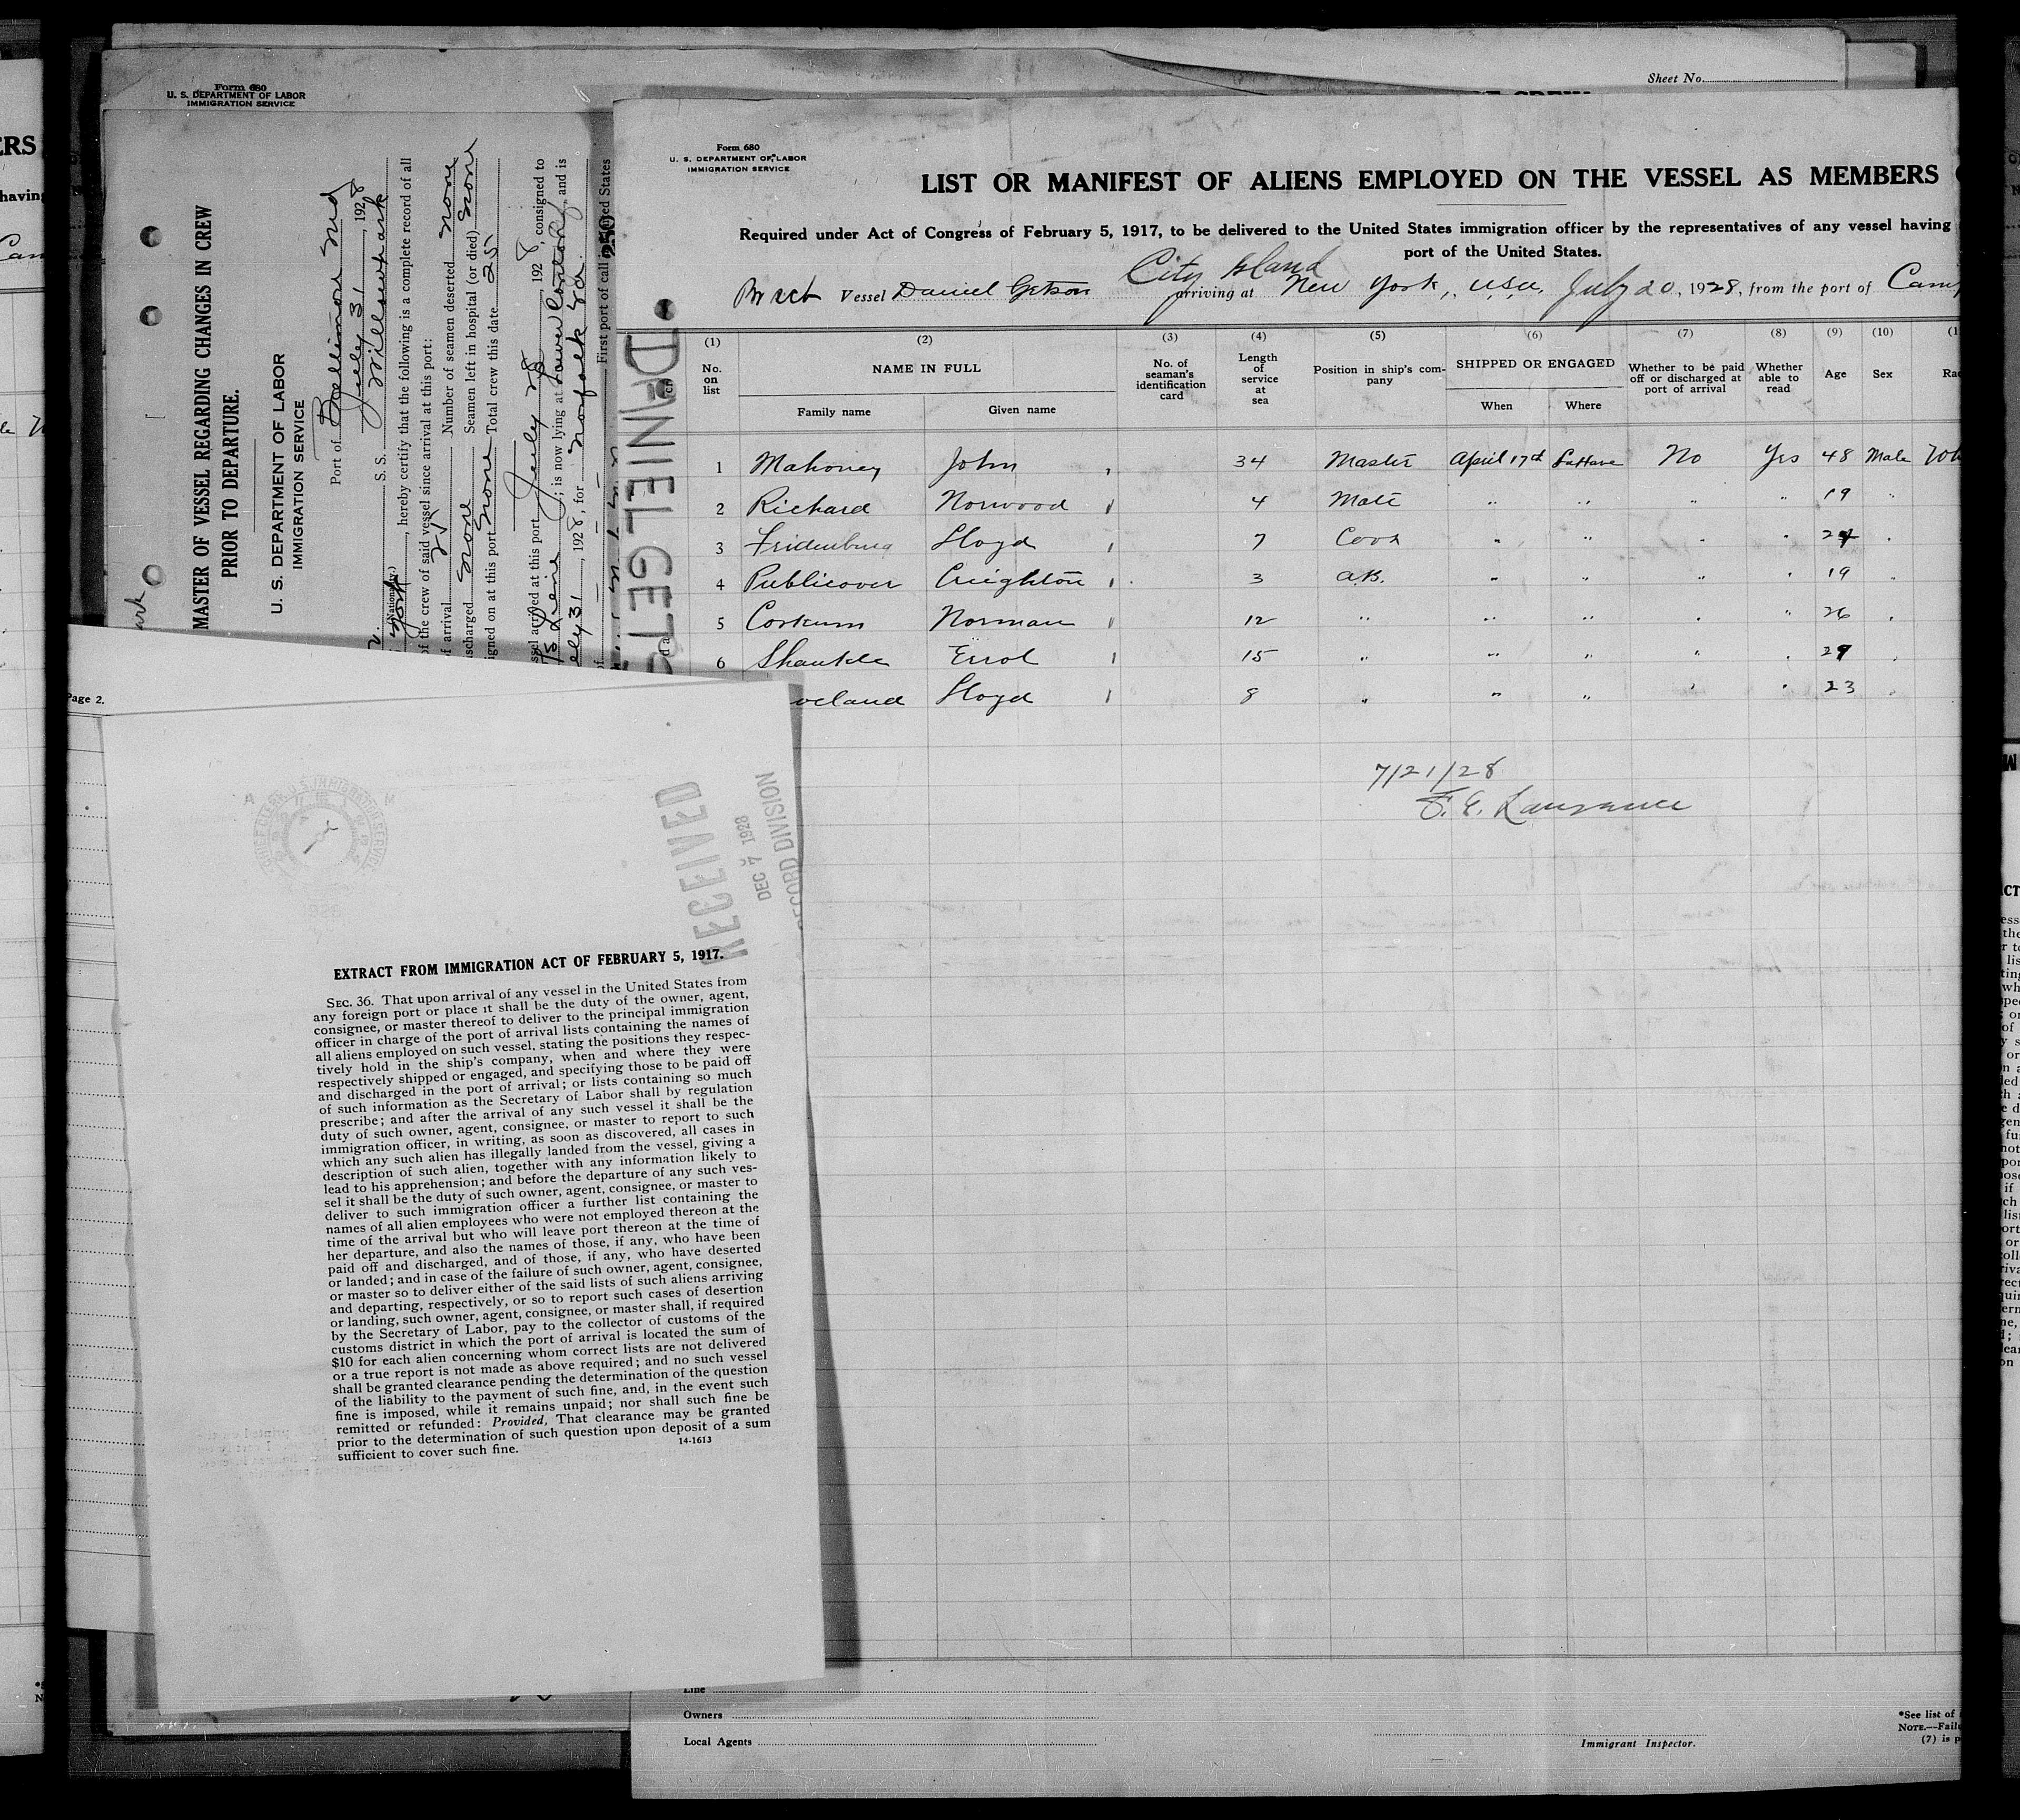 Form 680
U. S. DEPARTMENT OF LABOR
IMMIGRATION SERVICE
Sheet No.
MASTER OF VESSEL REGARDING CHANGES IN CREW
PRIOR TO DEPARTURE.
U. S. DEPARTMENT OF LABOR
IMMIGRATION SERVICE
Port of Baltimore Md
July 31, 1928
S. S. Willowhark
, hereby certify that the following is a complete record of all
of the crew of said vessel since arrival at this port:
of arrival 25 Number of seamen deserted none
scharged none Seamen left in hospital (or died) none
signed on at this port none Total crew this date 25
ssel arrived at this port July 28, 1928, consigned to
; is now lying at Lower Canton, and is
ly 31, 1928, for Norfolk Va.
First port of call in United States
DANIEL GETS
Form 680
U. S. DEPARTMENT OF LABOR
IMMIGRATION SERVICE
LIST OR MANIFEST OF ALIENS EMPLOYED ON THE VESSEL AS MEMBERS
Required under Act of Congress of February 5, 1917, to be delivered to the United States immigration officer by the representatives of any vessel having
port of the United States.
City Island
Vessel Daniel Getson arriving at New York, U.S.A., July 20, 1928, from the port of Cam
(1) (2) (3) (4) (5) (6) (7) (8) (9) (10)
No. on list NAME IN FULL No. of seaman's identification card Length of service at sea Position in ship's company SHIPPED OR ENGAGED Whether to be paid off or discharged at port of arrival Whether able to read Age Sex Rac
Family name Given name When Where
1 Mahoney John 34 Master April 17th LaHave No Yes 48 Male Wh
2 Richard Norwood 4 Mate " " " " 19 "
3 Fridenburg Lloyd 7 Cook " " " "
4 Publicover Creighton 3 A.B. " " " " 19 "
5 Corkum Norman 12 " " " " " 26 "
6 Shankle Errol 15 " " " " " 29 "
oveland Lloyd 8 " " " " " 23 "
7/21/28
Page 2.
RECEIVED
DEC 7 1928
RECORD DIVISION
EXTRACT FROM IMMIGRATION ACT OF FEBRUARY 5, 1917.
SEC. 36. That upon arrival of any vessel in the United States from
any foreign port or place it shall be the duty of the owner, agent,
consignee, or master thereof to deliver to the principal immigration
officer in charge of the port of arrival lists containing the names of
all aliens employed on such vessel, stating the positions they respec-
tively hold in the ship's company, when and where they were
respectively shipped or engaged, and specifying those to be paid off
and discharged in the port of arrival; or lists containing so much
of such information as the Secretary of Labor shall by regulation
prescribe; and after the arrival of any such vessel it shall be the
duty of such owner, agent, consignee, or master to report to such
immigration officer, in writing, as soon as discovered, all cases in
which any such alien has illegally landed from the vessel, giving a
description of such alien, together with any information likely to
lead to his apprehension; and before the departure of any such ves-
sel it shall be the duty of such owner, agent, consignee, or master to
deliver to such immigration officer a further list containing the
names of all alien employees who were not employed thereon at the
time of the arrival but who will leave port thereon at the time of
her departure, and also the names of those, if any, who have been
paid off and discharged, and of those, if any, who have deserted
or landed; and in case of the failure of such owner, agent, consignee,
or master so to deliver either of the said lists of such aliens arriving
and departing, respectively, or so to report such cases of desertion
or landing, such owner, agent, consignee, or master shall, if required
by the Secretary of Labor, pay to the collector of customs of the
customs district in which the port of arrival is located the sum of
$10 for each alien concerning whom correct lists are not delivered
or a true report is not made as above required; and no such vessel
shall be granted clearance pending the determination of the question
of the liability to the payment of such fine, and, in the event such
fine is imposed, while it remains unpaid; nor shall such fine be
remitted or refunded: Provided, That clearance may be granted
prior to the determination of such question upon deposit of a sum
sufficient to cover such fine.
14-1613
Line
Owners
Local Agents
Immigrant Inspector.
*See list of
NOTE.—Failu
(7) is p